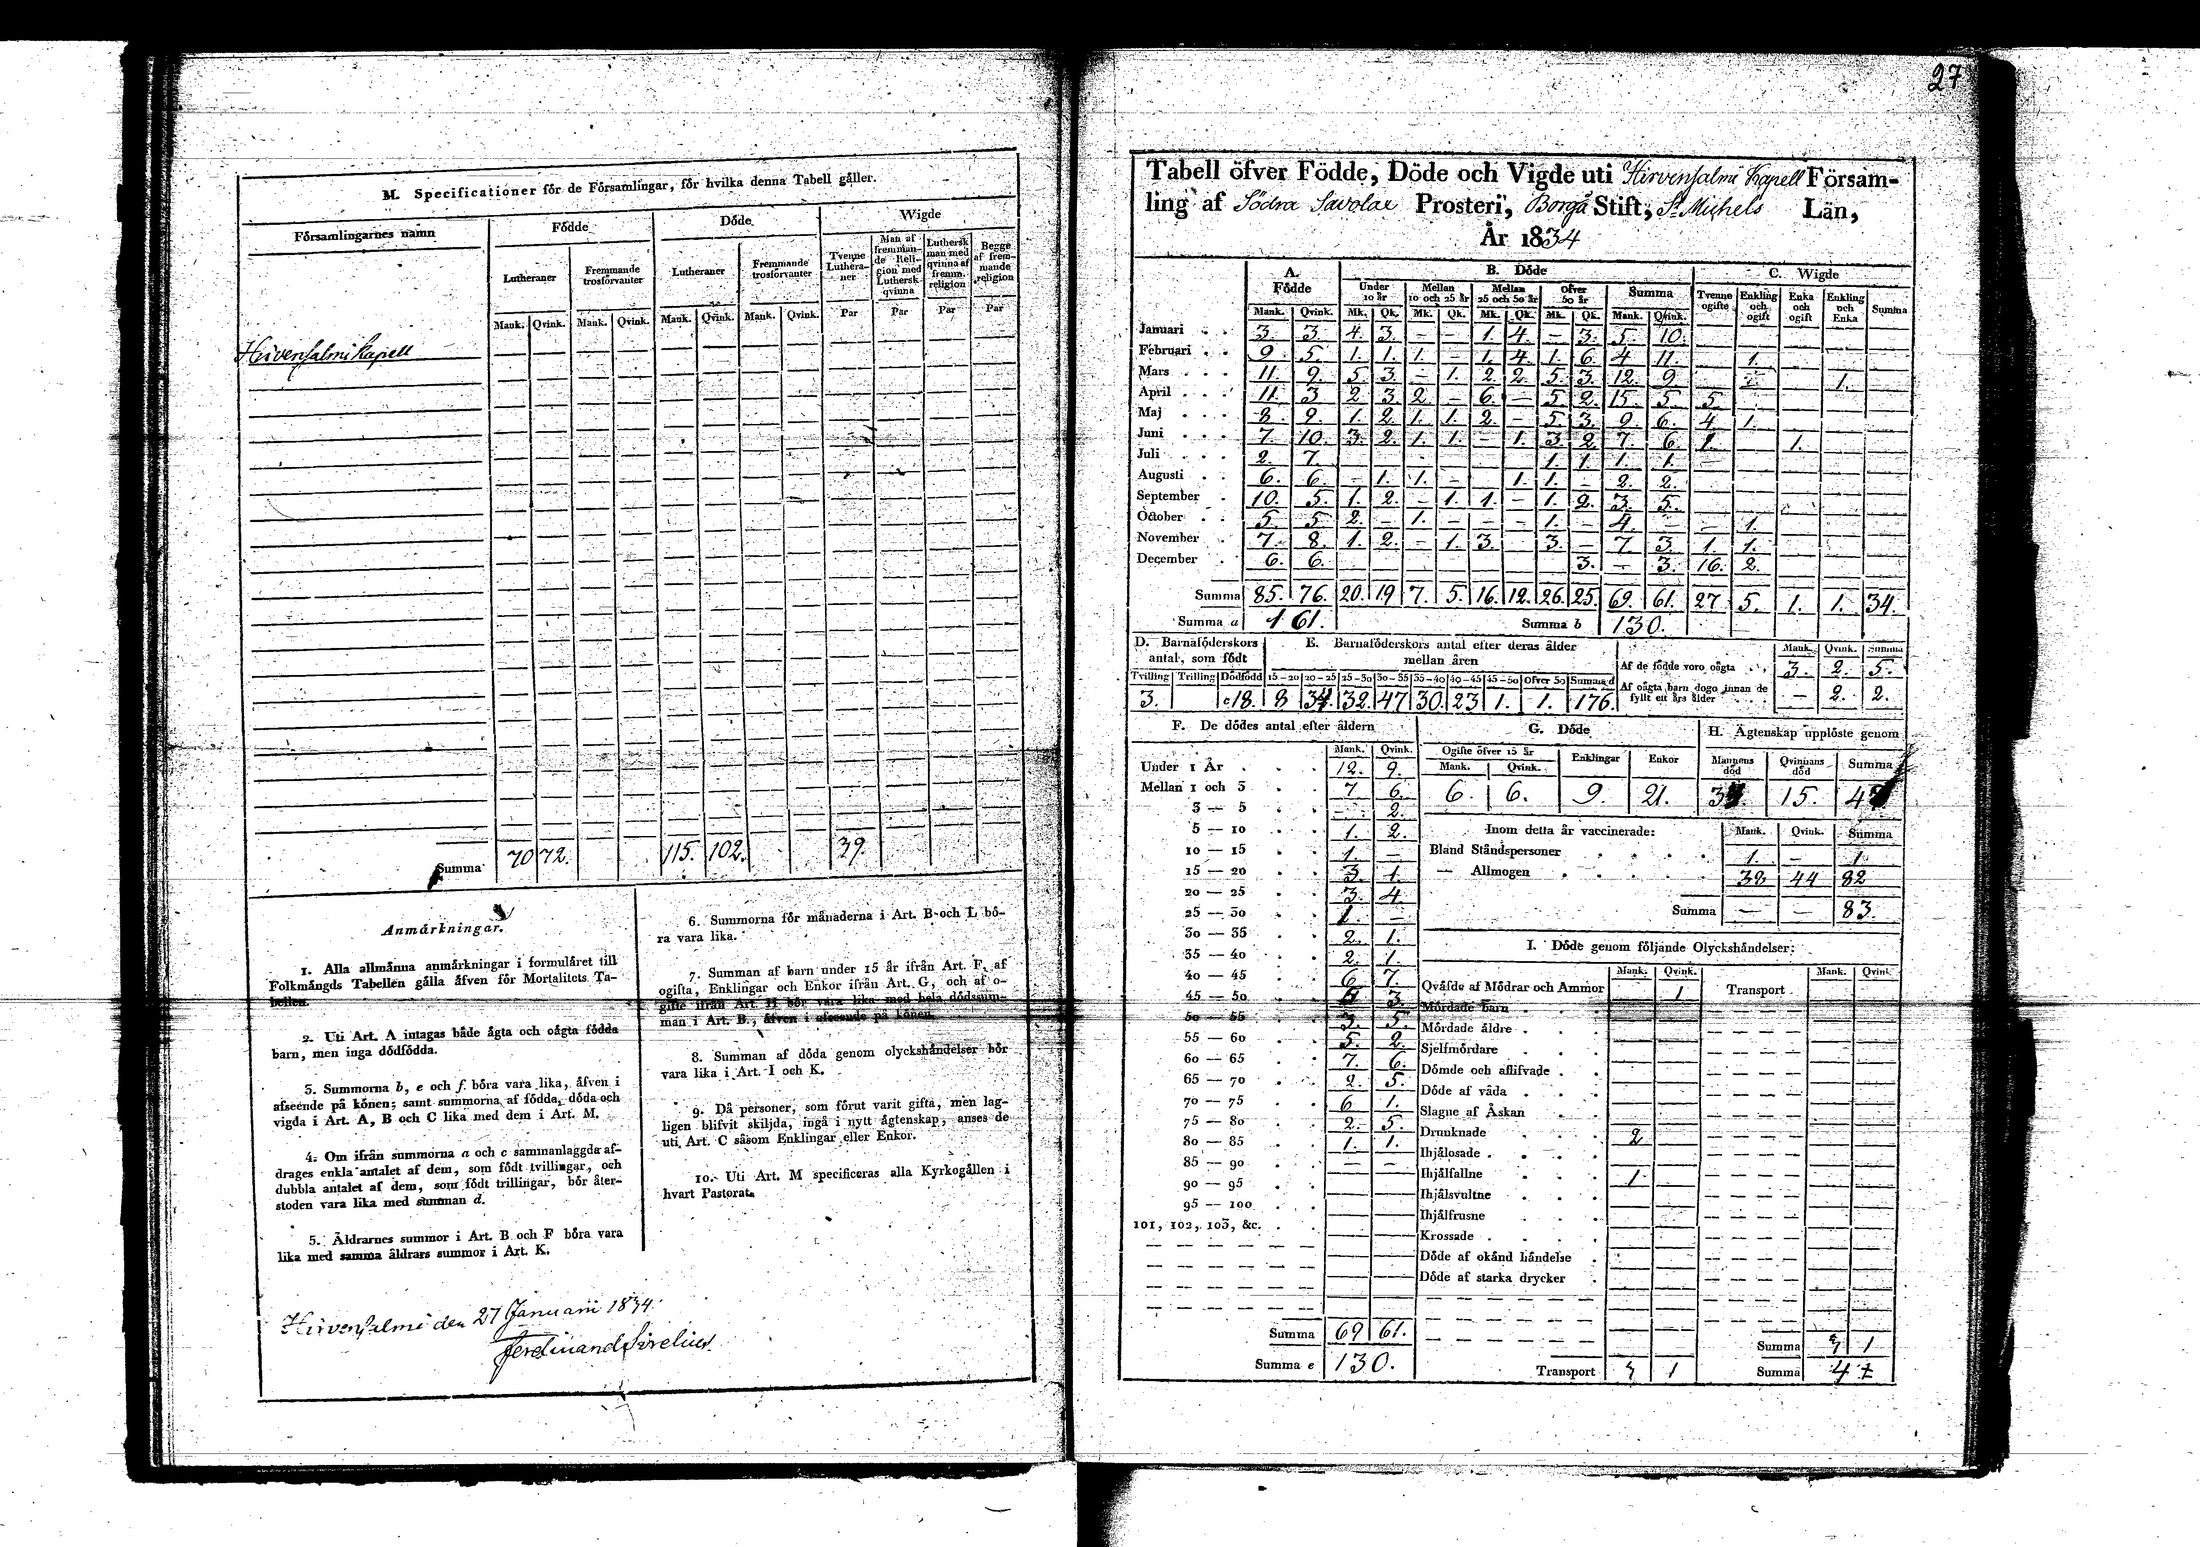 27
M. Specificationer för de Församlingar, för hvilka denna Tabell gäller.
Församlingarnes namn | Födde | Döde | Wigde
Lutheraner | Fremmande trosförvanter | Lutheraner | Fremmande trosförvanter | Tvenne Lutheraner | Man af fremmande Religion med Luthersk qvinna | Luthersk man med qvinna af fremm. religion | Begge af fremmande religion
Mank. | Qvink. | Mank. | Qvink. | Mank. | Qvink. | Mank. | Qvink. | Par | Par | Par | Par
Hirvensalmi Kapell
Summa | 70 | 72. | 115. | 102. | 39.
Anmärkningar.
1. Alla allmänna anmärkningar i formuläret till
Folkmängds Tabellen gälla äfven för Mortalitets Ta-
bellen.
2. Uti Art. A intagas både ägta och oägta födda
barn, men inga dödfödda.
3. Summorna b, e och f. böra vara lika, äfven i
afseende på könen; samt summorna af födda, döda och
vigda i Art. A, B och C lika med dem i Art. M.
4. Om ifrån summorna a och c sammanlaggda af-
drages enkla antalet af dem, som födt tvillingar, och
dubbla antalet af dem, som födt trillingar, bör åter-
stoden vara lika med summan d.
5. Äldrarnes summor i Art. B och F böra vara
lika med samma äldrars summor i Art. K.
6. Summorna för månaderna i Art. B och L bö-
ra vara lika.
7. Summan af barn under 15 år ifrån Art. F, af
ogifta, Enklingar och Enkor ifrån Art. G, och af o-
gifte ifrån Art. H bör vara lika med hela dödssum-
man i Art. B, äfven i afseende på könen.
8. Summan af döda genom olyckshändelser bör
vara lika i Art. I och K.
9. Då personer, som förut varit gifta, men lag-
ligen blifvit skiljda, ingå i nytt ägtenskap, anses de
uti Art. C såsom Enklingar eller Enkor.
10. Uti Art. M specificeras alla Kyrkogällen i
hvart Pastorat.
Hirvensalmi den 27 Januarii 1834.
Ferdinand Sirelius
Tabell öfver Födde, Döde och Vigde uti Hirvensalmi Kapell Församling
ling af Södra Savolax Prosteri, Borgå Stift, St Michels Län,
År 1834
A. Födde | B. Döde | C. Wigde
Under 10 år | Mellan 10 och 25 år | Mellan 25 och 50 år | Öfver 50 år | Summa | Tvenne ogifte | Enkling och ogift | Enka och ogift | Enkling och Enka | Summa
Mank. | Qvink. | Mk. | Qk. | Mk. | Qk. | Mk. | Qk. | Mk. | Qk. | Mank. | Qvink.
Januari | 3. | 3. | 4. | 3. | – | – | 1. | 4. | – | 3. | 5. | 10.
Februari | 9. | 5. | 1. | 1. | 1. | – | 1. | 4. | 1. | 6. | 4. | 11. | 1.
Mars | 11. | 9. | 5. | 3. | – | 1. | 2. | 2. | 5. | 3. | 12. | 9. | 1.
April | 11. | 3. | 2. | 3. | 2. | – | 6. | – | 5. | 2. | 15. | 5. | 5.
Maj | 8. | 9. | 1. | 2. | 1. | 1. | 2. | – | 5. | 3. | 9. | 6. | 4. | 1.
Juni | 7. | 10. | 3. | 2. | 1. | 1. | – | 1. | 3. | 2. | 7. | 6. | 1. | 1.
Juli | 2. | 7. | 1. | 1. | 1. | 1.
Augusti | 6. | 6. | – | 1. | 1. | – | 1. | 1. | – | 2. | 2.
September | 10. | 5. | 1. | 2. | – | 1. | 1. | – | 1. | 2. | 3. | 5.
October | 5. | 5. | 2. | – | 1. | – | – | – | 1. | – | 4. | – | – | 1.
November | 7. | 8. | 1. | 2. | – | 1. | 3. | 3. | – | 7. | 3. | 1. | 1.
December | 6. | 6. | 3. | – | 3. | 16. | 2.
Summa | 85. | 76. | 20. | 19 | 7. | 5. | 16. | 12. | 26. | 25. | 69. | 61. | 27 | 5. | 1. | 1. | 34.
Summa a | 161. | Summa b | 130.
D. Barnaföderskors antal, som födt | E. Barnaföderskors antal efter deras ålder mellan åren | Mank. | Qvink. | Summa
Tvilling | Trilling | Dödfödd | 15–20 | 20–25 | 25–30 | 30–35 | 35–40 | 40–45 | 45–50 | Öfver 50 | Summa d
3. | c 18. | 8 | 34. | 32. | 47 | 30. | 23 | 1. | 1. | 176.
Af de födde voro oägta | 3. | 2. | 5.
Af oägta barn dogo innan de fyllt ett års ålder | – | 2. | 2.
F. De dödes antal efter åldern
Mank. | Qvink.
Under 1 År | 12. | 9.
Mellan 1 och 3 | 7 | 6.
3 — 5 | – | 2.
5 — 10 | 1. | 2.
10 — 15 | 1. | –
15 — 20 | 3. | 1.
20 — 25 | 3. | 4.
25 — 30 | 1. | –
30 — 35 | 2. | 1.
35 — 40 | 2. | 1.
40 — 45 | 6 | 7.
45 — 50 | 3.
50 — 55 | 3. | 5.
55 — 60 | 5. | 2.
60 — 65 | 7. | 6.
65 — 70 | 2. | 5.
70 — 75 | 6 | 1.
75 — 80 | 2. | 5.
80 — 85 | 1. | 1.
85 — 90 | – | –
90 — 95
95 — 100
101, 102, 103, &c.
Summa | 69 | 61.
Summa e | 130.
G. Döde
Ogifte öfver 15 år | Enklingar | Enkor
Mank. | Qvink.
6. | 6. | 9. | 21.
H. Ägtenskap upplöste genom
Mannens död | Qvinnans död | Summa
15.
Inom detta år vaccinerade: | Mank. | Qvink. | Summa
Bland Ståndspersoner | 1. | – | 1.
— Allmogen | 38 | 44 | 82
Summa | — | — | 83.
I. Döde genom följande Olyckshändelser:
Mank. | Qvink. | Mank. | Qvink.
Qväfde af Mödrar och Ammor | 1 | Transport
Mördade barn
Mördade äldre
Sjelfmördare
Dömde och aflifvade
Döde af våda
Slagne af Åskan
Drunknade | 2
Ihjälosade
Ihjälfallne | 1.
Ihjälsvultne
Ihjälfrusne
Krossade
Döde af okänd händelse
Döde af starka drycker
Summa | 3 | 1
Transport | 3 | 1 | Summa | 4